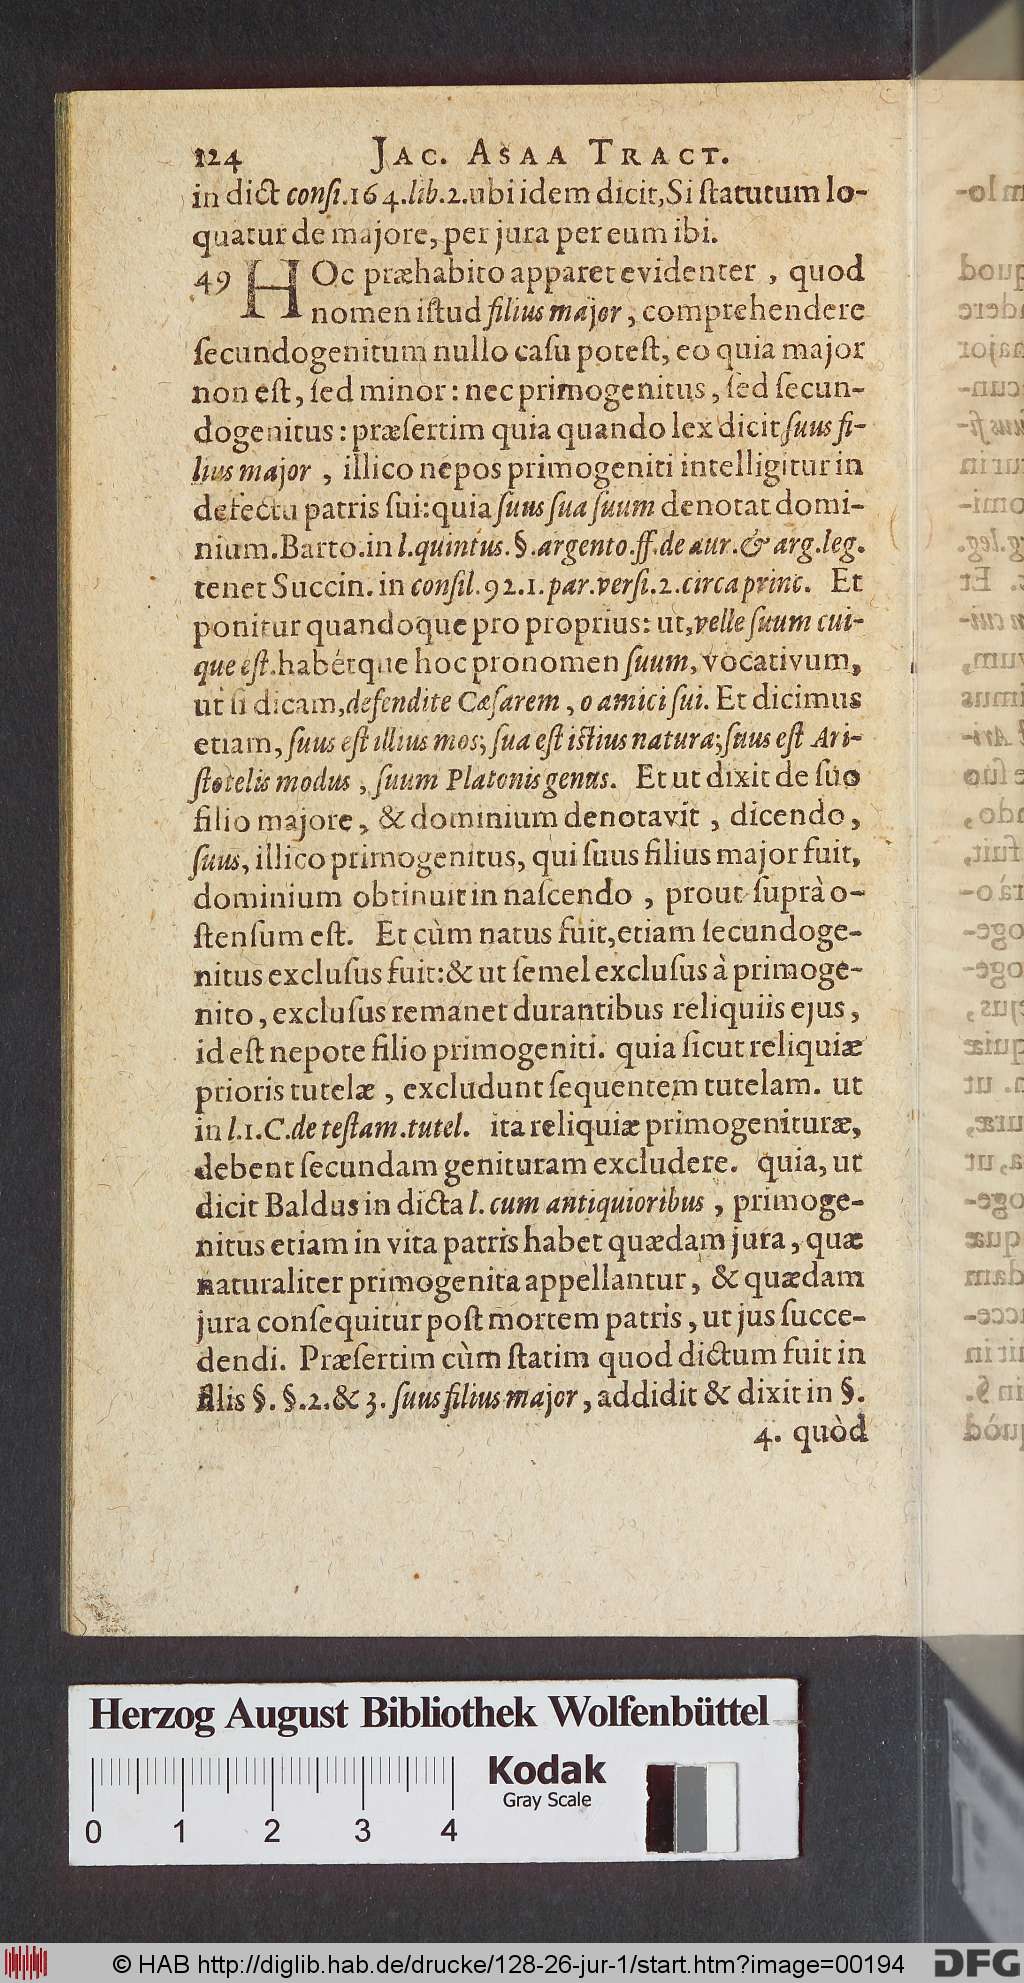 124 JAC. ASAA TRACT.
in dict consi.164.lib.2.ubi idem dicit, Si ſtatutum lo-
quatur de majore, per jura per eum ibi.
49 HOc præhabito apparet evidenter , quod
nomen iſtud filius major, comprehendere
ſecundogenitum nullo caſu poteſt, eo quia major
non eſt, ſed minor: nec primogenitus, ſed ſecun-
dogenitus: præſertim quia quando lex dicit ſuus fi-
lius major , illico nepos primogeniti intelligitur in
defectu patris ſui: quia ſuus ſua ſuum denotat domi-
nium. Barto. in l.quintus. §.argento.ff.de aur.& arg.leg.
tenet Succin. in conſil.92.1.par.verſi.2.circa princ. Et
ponitur quandoque pro proprius: ut, velle ſuum cui-
que eſt. habétque hoc pronomen ſuum, vocativum,
ut ſi dicam, defendite Cæſarem, o amici ſui. Et dicimus
etiam, ſuus eſt illius mos; ſua eſt iſtius natura; ſuus eſt Ari-
ſtotelis modus , ſuum Platonis genus. Et ut dixit de ſuo
filio majore, & dominium denotavit , dicendo,
ſuus, illico primogenitus, qui ſuus filius major fuit,
dominium obtinuit in naſcendo , prout ſuprà o-
ſtenſum eſt. Et cùm natus fuit, etiam ſecundoge-
nitus excluſus fuit: & ut ſemel excluſus à primoge-
nito, excluſus remanet durantibus reliquiis ejus,
id eſt nepote filio primogeniti. quia ſicut reliquiæ
prioris tutelæ , excludunt ſequentem tutelam. ut
in l.1.C.de teſtam.tutel. ita reliquiæ primogenituræ,
debent ſecundam genituram excludere. quia, ut
dicit Baldus in dicta l. cum antiquioribus , primoge-
nitus etiam in vita patris habet quædam jura, quæ
naturaliter primogenita appellantur, & quædam
jura conſequitur poſt mortem patris, ut jus ſucce-
dendi. Præſertim cùm ſtatim quod dictum fuit in
illis §. §.2.& 3. ſuus filius major, addidit & dixit in §.
4. quòd
Herzog August Bibliothek Wolfenbüttel
Kodak
Gray Scale
0 1 2 3 4
© HAB http://diglib.hab.de/drucke/128-26-jur-1/start.htm?image=00194
DFG